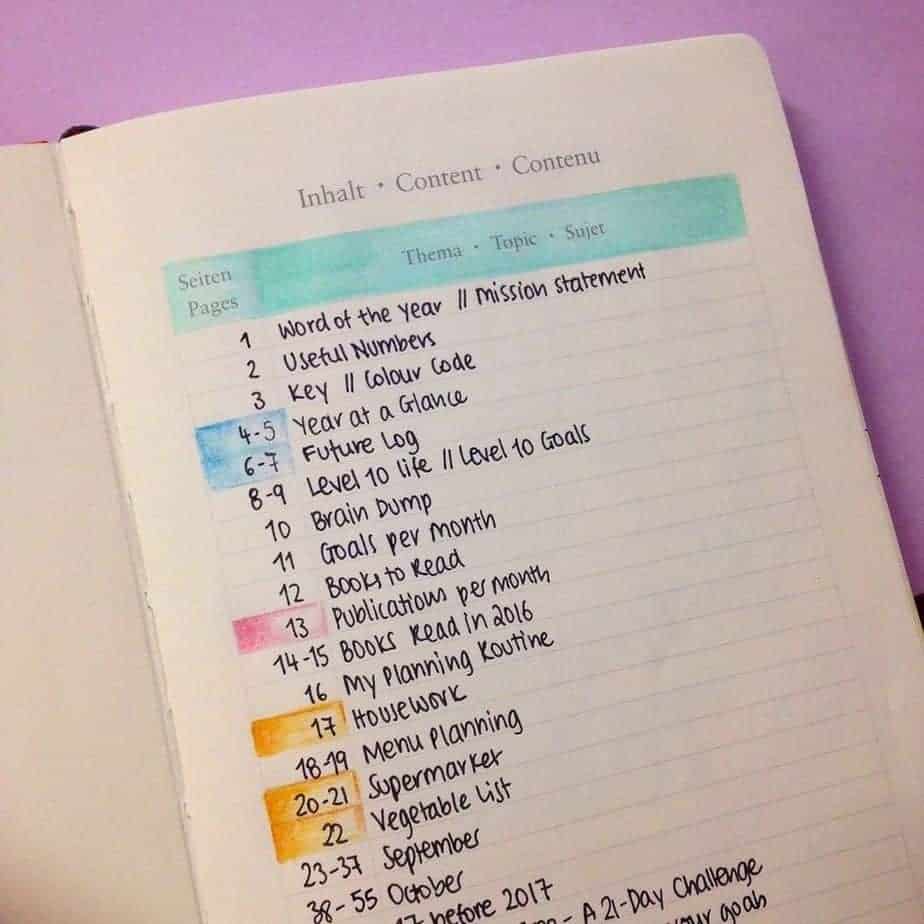 Inhalt · Content · Contenu
Seiten
Pages
Thema · Topic · Sujet
1 Word of the year // Mission statement
2 Useful Numbers
3 Key // Colour Code
4-5 Year at a Glance
6-7 Future Log
8-9 Level 10 life // Level 10 Goals
10 Brain Dump
11 Goals per month
12 Books to Read
13 Publications per month
14-15 Books Read in 2016
16 My Planning Routine
17 Housework
18-19 Menu Planning
20-21 Supermarket
22 Vegetable List
23-37 September
38-55 October
17 before 2017
- A 21-Day Challenge
your goals